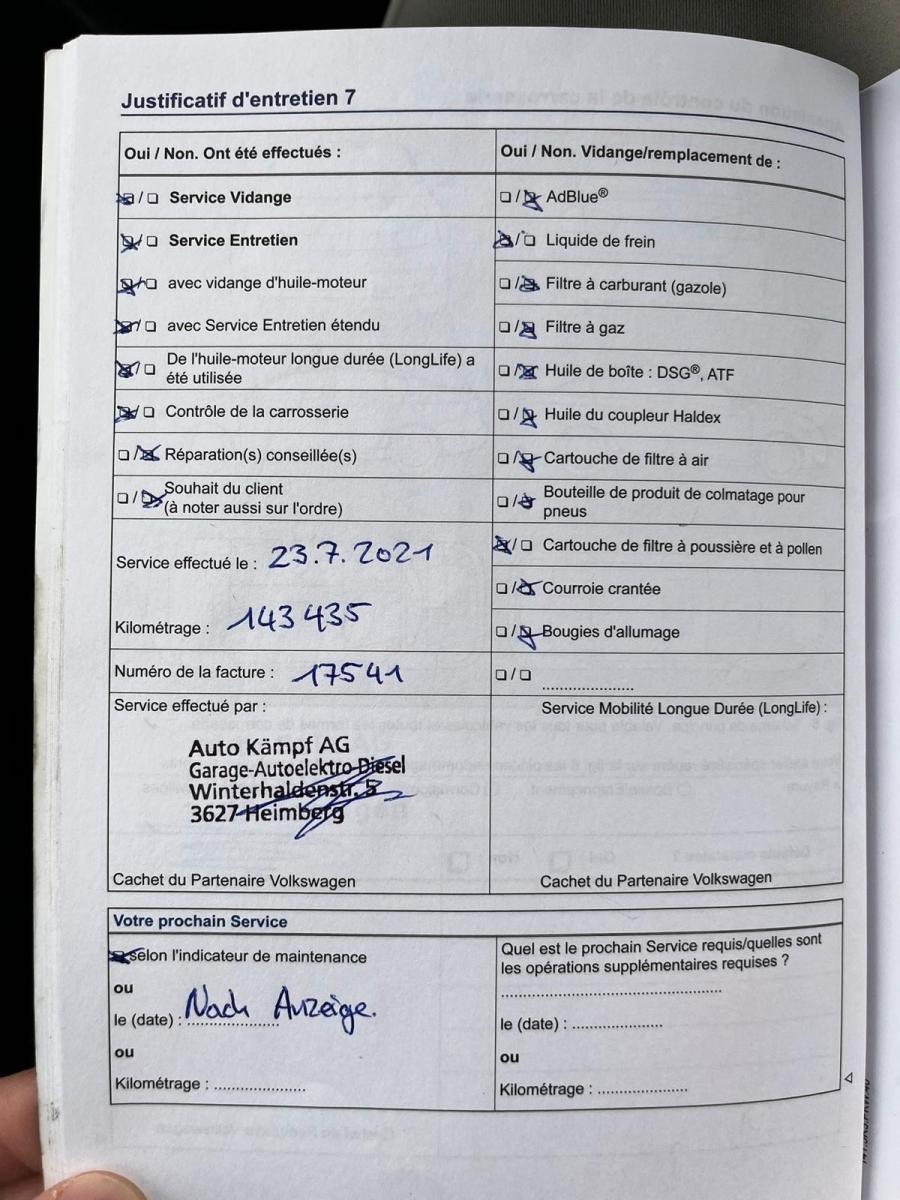 Justificatif d'entretien 7
Oui / Non. Ont été effectués :
☒/☐ Service Vidange
☒/☐ Service Entretien
☒/☐ avec vidange d'huile-moteur
☒/☐ avec Service Entretien étendu
☒/☐ De l'huile-moteur longue durée (LongLife) a
été utilisée
☒/☐ Contrôle de la carrosserie
☐/☒ Réparation(s) conseillée(s)
☐/☒ Souhait du client
(à noter aussi sur l'ordre)
Service effectué le : 23.7.2021
Kilométrage : 143 435
Numéro de la facture : 17541
Service effectué par :
Auto Kämpf AG
Garage-Autoelektro-Diesel
Winterhaldenstr. 5
3627 Heimberg
Cachet du Partenaire Volkswagen
Oui / Non. Vidange/remplacement de :
☐/☒ AdBlue®
☒/☐ Liquide de frein
☐/☒ Filtre à carburant (gazole)
☐/☒ Filtre à gaz
☐/☒ Huile de boîte : DSG®, ATF
☐/☒ Huile du coupleur Haldex
☐/☒ Cartouche de filtre à air
☐/☒ Bouteille de produit de colmatage pour
pneus
☒/☐ Cartouche de filtre à poussière et à pollen
☐/☒ Courroie crantée
☐/☒ Bougies d'allumage
☐/☐ ......................
Service Mobilité Longue Durée (LongLife) :
Cachet du Partenaire Volkswagen
Votre prochain Service
☒ selon l'indicateur de maintenance
ou
le (date) : Nach Anzeige.
ou
Kilométrage : ......................
Quel est le prochain Service requis/quelles sont
les opérations supplémentaires requises ?
......................................................
le (date) : ......................
ou
Kilométrage : ......................